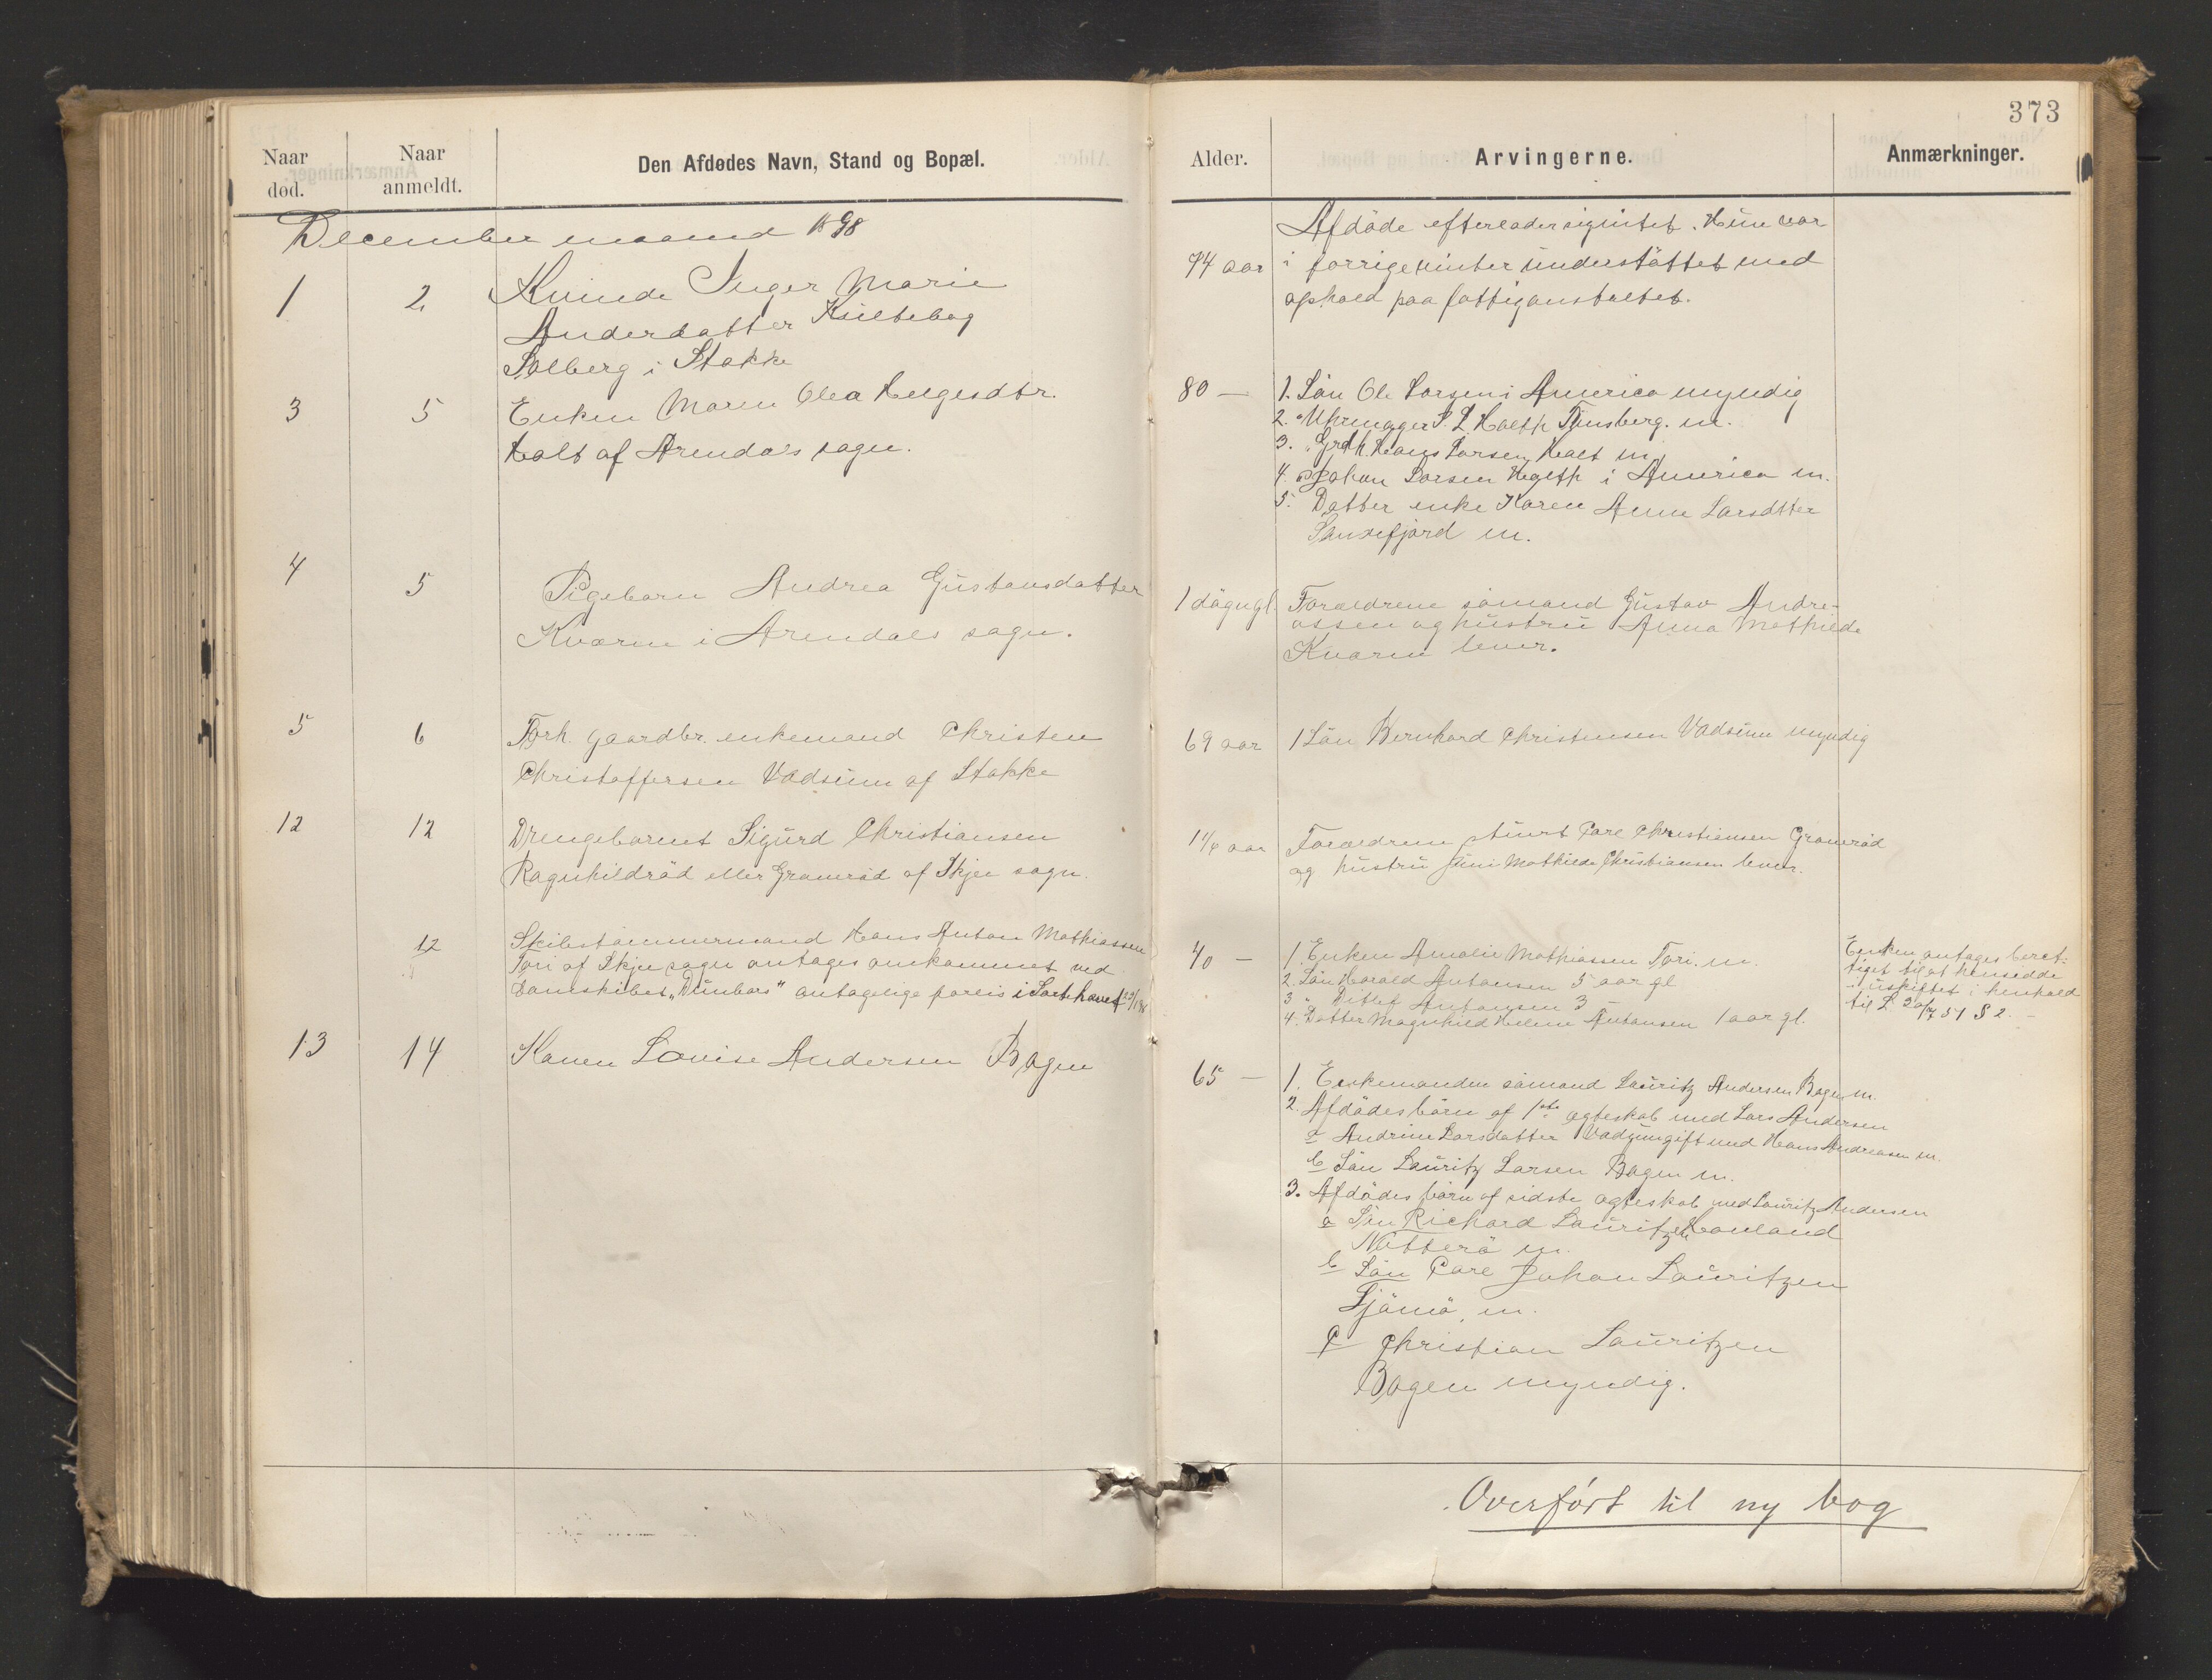 373
Naar død.
Naar anmeldt.
Den Afdødes Navn, Stand og Bopæl.
Alder.
Arvingerne.
Anmærkninger.
December maaned 1898
1
2
Kvinde Inger Marie
Anderdatter
Solberg i Stokke
74 aar
Afdöde efterlader sig intet. Hun var
i forrige vinter understöttet med
ophold paa fattiganstaltet.
3
5
Enken Maren Olea Helgesdtr.
Holt af Arendals sogn.
80 —
1. Sön Ole Larsen i America myndig
2. " Uhrmager S. L. Holth Tönsberg. m.
3. " Grdbr. Hans Larsen Holt m.
4. " Johan Larsen Holth i America m.
5. Datter enke Karen Anne Larsdtter
Sandefjord m.
4
5
Pigebarn Andrea Gustavsdatter
Kværne i Arendals sogn.
1 dögn gl.
Foræeldrene sömand Gustav Andre-
assen og hustru Anna Mathilde
Kværne lever.
5
6
Forh. gaardbr. enkemand Christen
Christoffersen Vadsum af Stokke
69 aar
1 Sön Bernhard Christensen Vadsum myndig
12
12
Drengebarnet Sigurd Christiansen
Ragnhildröd eller Graneröd af Skjee sogn.
1 1/4 aar
Forældrene Carl Christiansen Graneröd
og hustru Mathilde Christiansen lever.
12
Skibstömmermand Hans Anton Mathiassen
Tori af Skjee sogn antages omkommet ved
damskibet "Dunbars" antagelige forlis i Sortehavet
40 —
1. Enken Amalie Mathiassen Tori. m.
2. Sön Harald Antonsen 5 aar gl
3 " Ditlef Antonsen 3 —
4. Datter Magnhild Helene Antonsen 1 aar gl.
Enken antages beret-
tiget til at hensidde
i uskiftet i henhold
til L 30/7 51 § 2. —
13
14
Konen Lovise Andersen Bogen
65 —
1. Enkemanden sömand Lauritz Andersen Bogen m.
2. Afdödes börn af 1ste ægteskab med Lars Andersen
a Andrine Larsdatter Vadsum gift med Hans Andreasen m.
b Sön Lauritz Larsen Bogen m.
3. Afdödes börn af sidste ægteskab med Lauritz Andersen
a Sön Richard Lauritzen Houland
Nötterö m.
b Sön Carl Johan Lauritzen
Tjömö, m.
c Christian Lauritzen
Bogen myndig.
Overfört til ny bog